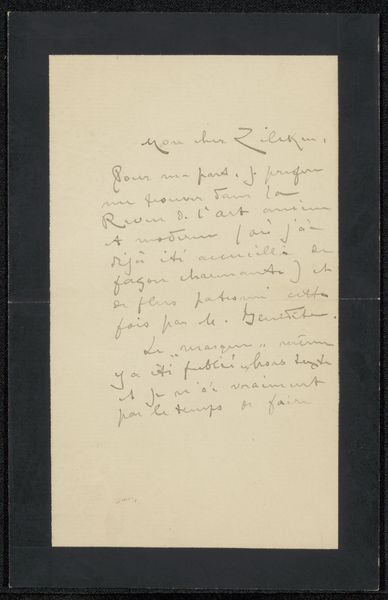 Mon cher Zilcken,
Pour ma part, je préfère
me trouver dans la
Revue de l'art ancien
et moderne (où j'ai
déjà été accueilli de
façon charmante) et
de plus patronné cette
fois par M. Bénédite.
Le "masque" même
y a été publié hors texte
et je n'ai vraiment
pas le temps de faire